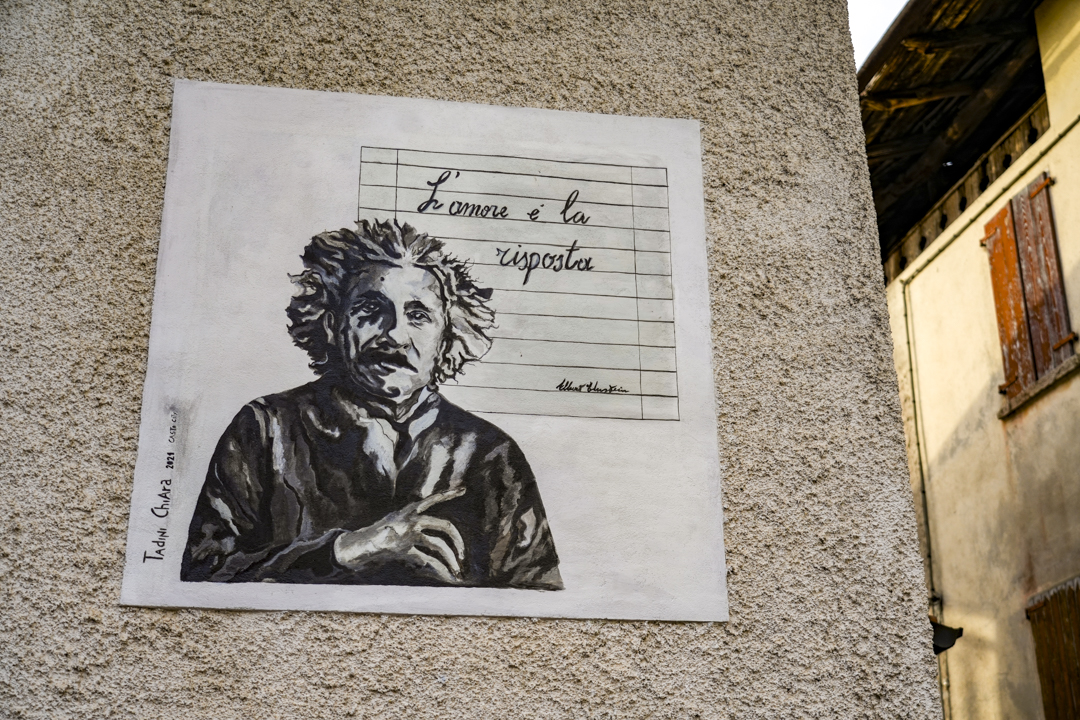 L'amore è la
risposta
Albert Einstein
Tadini Chiara 2021